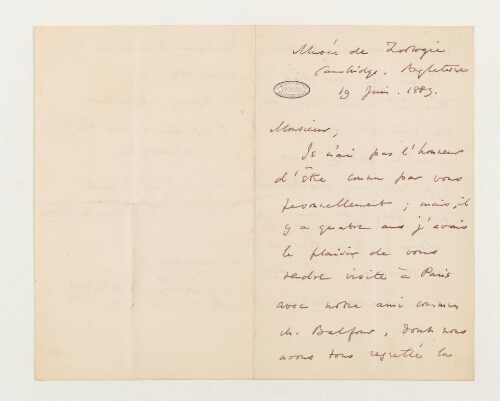 Musée de Zoologie
Cambridge. Angleterre
19 Juin. 1883.
Monsieur,
Je n'ai pas l'honneur
d'être connu par vous
personnellement; mais, il
y a quatre ans j'avais
le plaisir de vous
rendre visite à Paris
avec notre ami commun
M. Balfour, dont nous
avons tous regrettés la